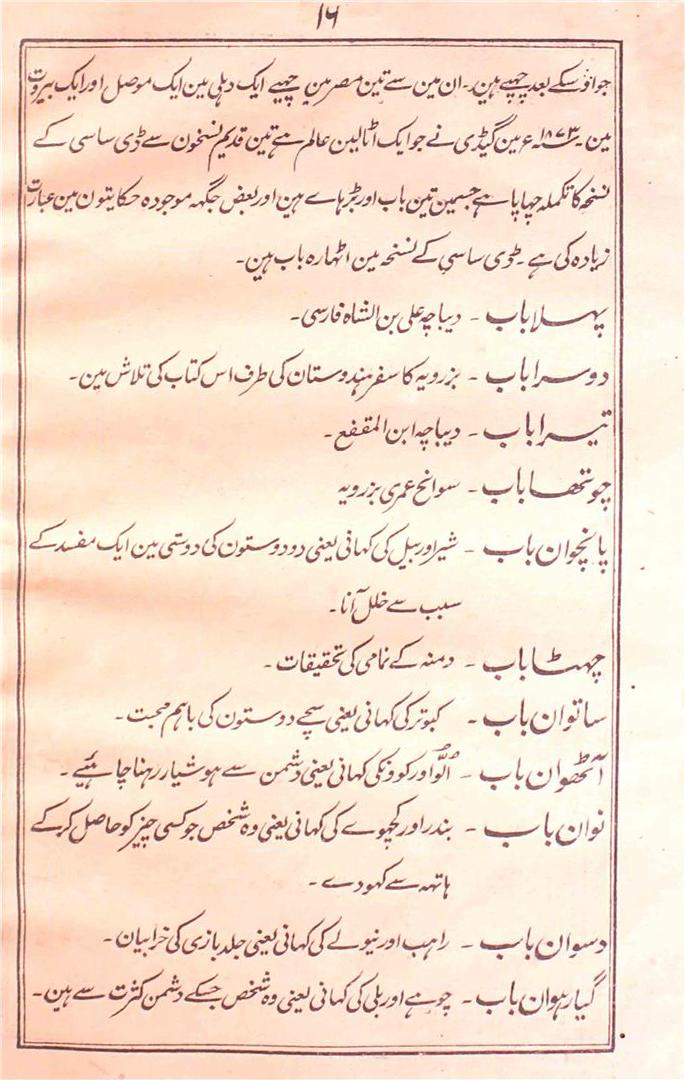 ۱۶
جو اوسکے بعد چھپے ہین۔ ان مین سے تین مصر مین چھپے ایک دہلی مین ایک موصل اور ایک بیروت
مین۔ ۱۸۷۳ء مین گیڈی نے جو ایک اٹالین عالم ہے تین قدیم نسخون سے ڈی ساسی کے
نسخہ کا تکملہ چہاپا ہے جسمین تین باب اور بڑہاے ہین اور بعض جگہہ موجودہ حکایتون مین عبارت
زیادہ کی ہے۔ ڈی ساسی کے نسخہ مین اٹھارہ باب ہین۔
پہلا باب ۔ دیباچہ علی بن الشاہ فارسی۔
دوسرا باب ۔ بزرویہ کا سفر ہندوستان کی طرف اس کتاب کی تلاش مین۔
تیسرا باب ۔ دیباچہ ابن المقفع۔
چوتھا باب ۔ سوانح عمری بزرویہ
پانچوان باب ۔ شیر اور بیل کی کہانی یعنی دو دوستون کی دوستی مین ایک مفسد کے
سبب سے خلل آنا۔
چھٹا باب ۔ دمنہ کے نمامی کی تحقیقات۔
ساتوان باب ۔ کبوتر کی کہانی یعنی سچے دوستون کی باہم محبت۔
آٹھوان باب ۔ الّو اور کوونکی کہانی یعنی دشمن سے ہوشیار رہنا چاہئیے۔
نوان باب ۔ بندر اور کچھوے کی کہانی یعنی وہ شخص جو کسی چیز کو حاصل کرکے
ہاتھہ سے کھودے۔
دسوان باب ۔ راہب اور نیولے کی کہانی یعنی جلد بازی کی خرابیان۔
گیارہوان باب ۔ چوہے اور بلی کی کہانی یعنی وہ شخص جسکے دشمن کثرت سے ہین۔